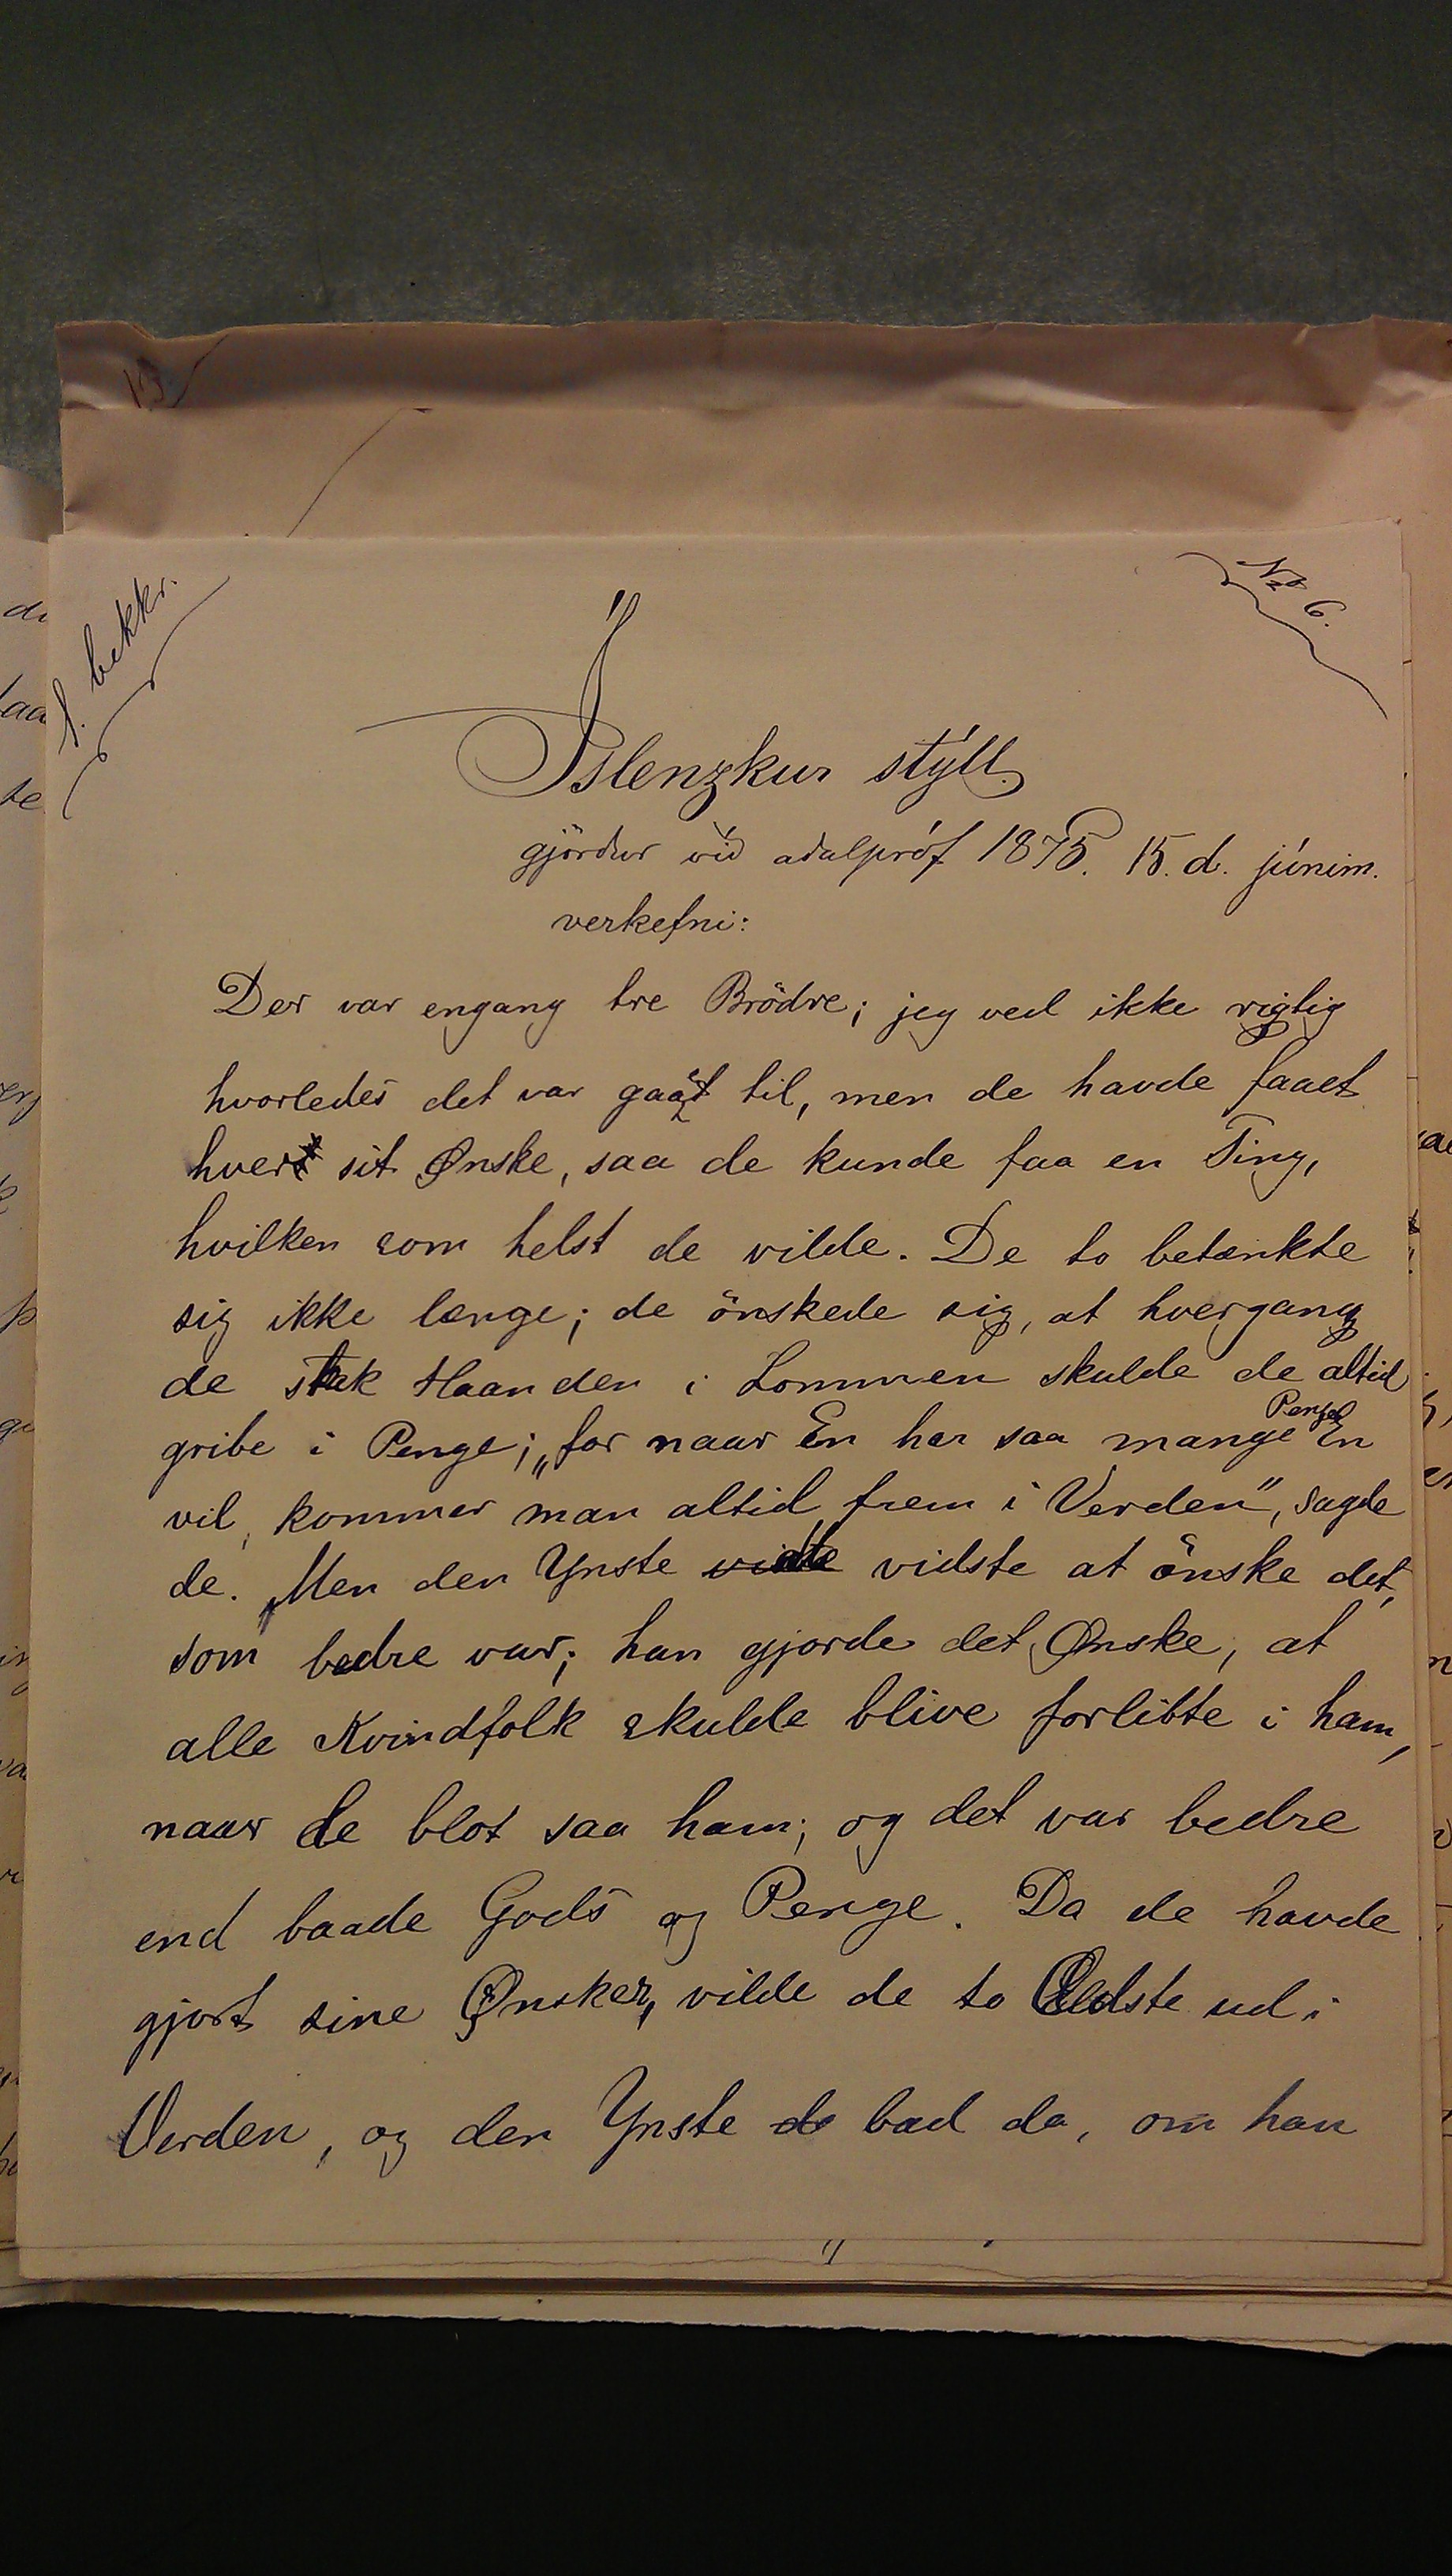 1. bekkr.
№ 6.
Íslenzkur stýll
gjörður við aðalpróf 1875. 15. d. júním.
verkefni:
Der var engang tre Brödre; jeg ved ikke rigtig
hvorledes det var gaaet til, men de havde faaet
hver sit Ønske, saa de kunde faa en Ting,
hvilken som helst de vilde. De to betænkte
sig ikke længe; de önskede sig, at hvergang
de stak Haanden i Lommen skulde de altid
gribe i Penge; „for naar En har saa mange Penge En
vil, kommer man altid frem i Verden", sagde
de. Men den Ynste vidste at önske det,
som bedre var; han gjorde det Ønske, at
alle Kvindfolk skulde blive forlibte i ham,
naar de blot saa ham; og det var bedre
end baade Gods og Penge. Da de havde
gjort sine Ønsker, vilde de to Ældste ud i
Verden, og den Ynste bad da, om han